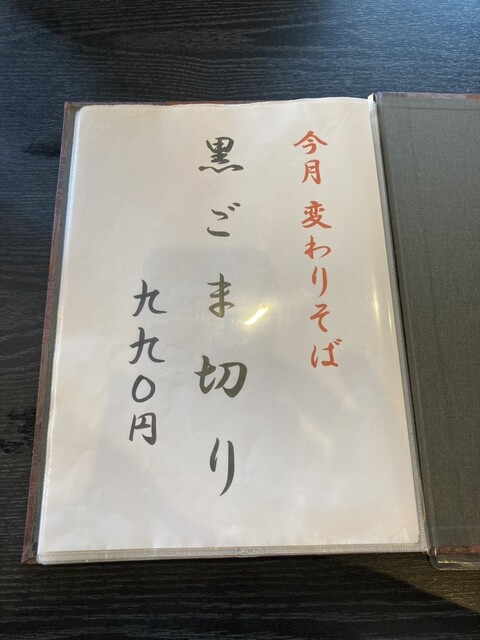 今月 変わりそば
黒ごま切り
九九〇円